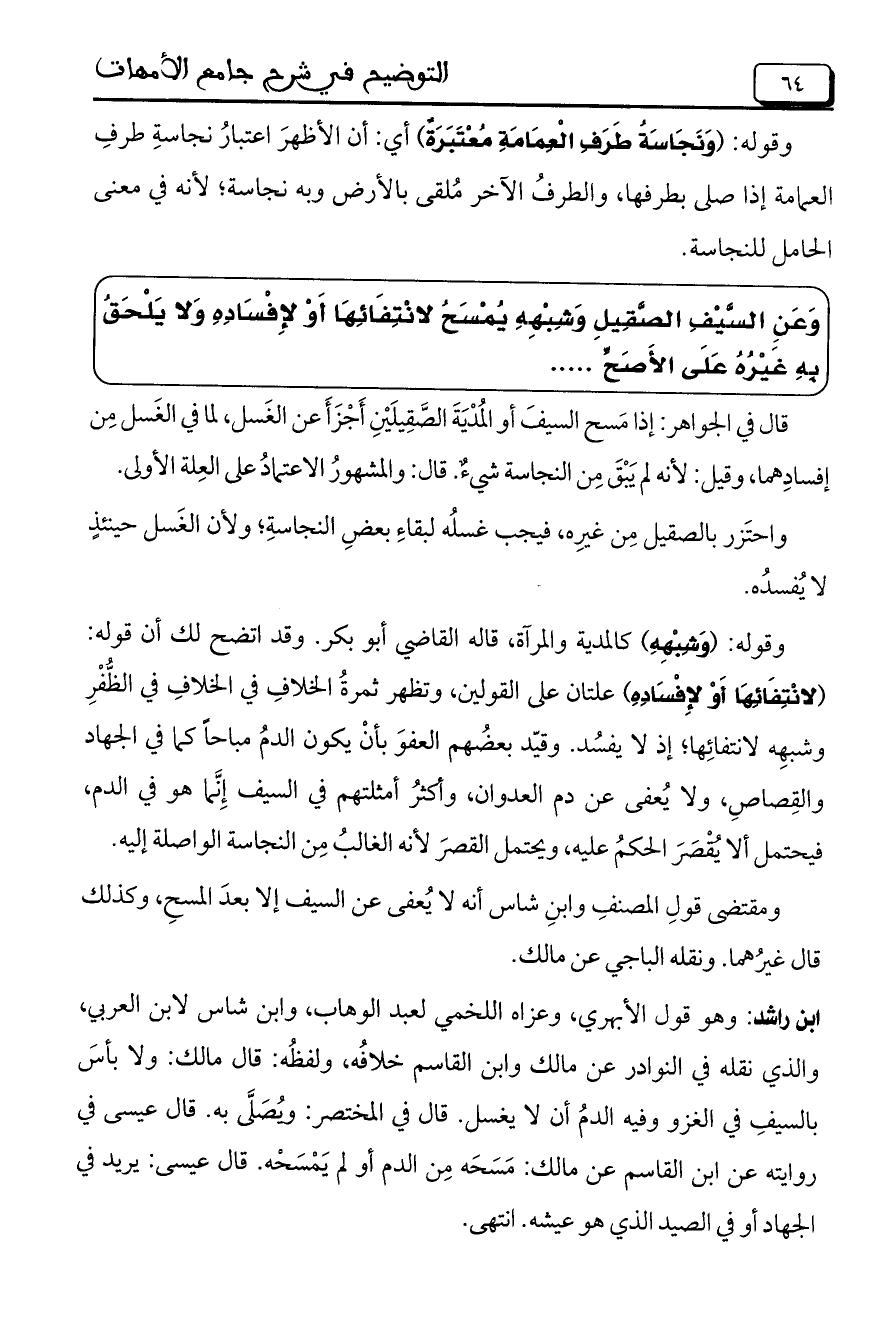 ٦٤
التوضيح في شرح جامع الأمهات
وقوله: (وَنَجَاسَةُ طَرَفِ الْعِمَامَةِ مُعْتَبَرَةٌ) أي: أن الأظهرَ اعتبارُ نجاسةِ طرفِ
العمامة إذا صلى بطرفها، والطرفُ الآخر مُلقى بالأرض وبه نجاسة؛ لأنه في معنى
الحامل للنجاسة.
وَعَنِ السَّيْفِ الصَّقِيلِ وَشِبْهِهِ يُمْسَحُ لانْتِفَائِهَا أَوْ لإِفْسَادِهِ وَلا يَلْحَقُ
بِهِ غَيْرُهُ عَلَى الأَصَحِّ .....
قال في الجواهر: إذا مَسح السيفَ أو المُدْيَةَ الصَّقِيلَيْنِ أَجْزَأَ عن الغَسل، لما في الغَسل مِن
إفسادِهما، وقيل: لأنه لم يَبْقَ مِن النجاسة شيءٌ. قال: والمشهورُ الاعتمادُ على العِلة الأولى.
واحتَرز بالصقيل مِن غيرِه، فيجب غسلُه لبقاءِ بعضِ النجاسةِ؛ ولأن الغَسل حينئذٍ
لا يُفسدُه.
وقوله: (وَشِبْهِهِ) كالمدية والمرآة، قاله القاضي أبو بكر. وقد اتضح لك أن قوله:
(لانْتِفَائِهَا أَوْ لإِفْسَادِهِ) علتان على القولين، وتظهر ثمرةُ الخلافِ في الخلافِ في الظُّفْرِ
وشبهِه لانتفائِها؛ إذ لا يفسُد. وقيّد بعضُهم العفوَ بأنْ يكون الدمُ مباحاً كما في الجهاد
والقِصاصِ، ولا يُعفى عن دم العدوان، وأكثرُ أمثلتهم في السيف إِنَّما هو في الدم،
فيحتمل ألا يُقْصَرَ الحكمُ عليه، ويحتمل القصرَ لأنه الغالبُ مِن النجاسة الواصلة إليه.
ومقتضى قولِ المصنفِ وابنِ شاس أنه لا يُعفى عن السيف إلا بعدَ المسحِ، وكذلك
قال غيرُهما. ونقله الباجي عن مالك.
ابن راشد: وهو قول الأبهري، وعزاه اللخمي لعبد الوهاب، وابن شاس لابن العربي،
والذي نقله في النوادر عن مالك وابن القاسم خلافُه، ولفظُه: قال مالك: ولا بأسَ
بالسيفِ في الغزو وفيه الدمُ أن لا يغسل. قال في المختصر: ويُصَلَّى به. قال عيسى في
روايته عن ابن القاسم عن مالك: مَسَحَه مِن الدم أو لم يَمْسَحْه. قال عيسى: يريد في
الجهاد أو في الصيد الذي هو عيشه. انتهى.